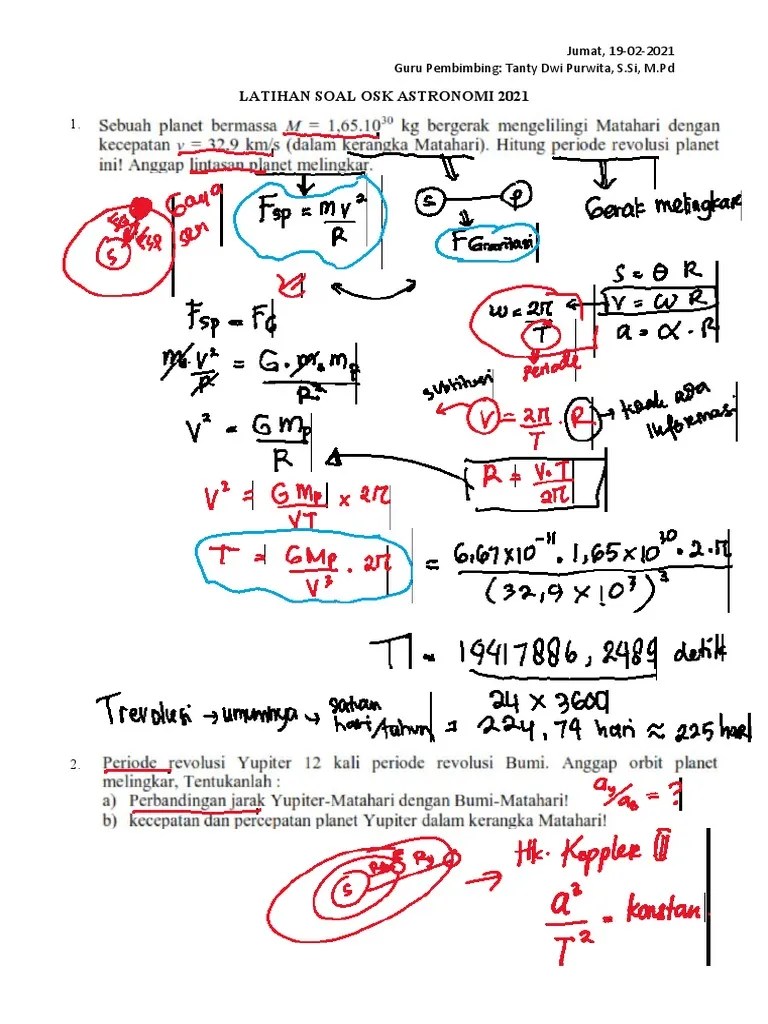 Jumat, 19-02-2021
Guru Pembimbing: Tanty Dwi Purwita, S.Si, M.Pd
LATIHAN SOAL OSK ASTRONOMI 2021
1. Sebuah planet bermassa M = 1,65.10³⁰ kg bergerak mengelilingi Matahari dengan
kecepatan v = 32,9 km/s (dalam kerangka Matahari). Hitung periode revolusi planet
ini! Anggap lintasan planet melingkar.
Gaya
sen
S
Fsp
Fsp = mv²/R
S P
F Gravitasi
Gerak melingkar
S = θ R
V = ω R
a = α . R
ω = 2π/T
periode
Fsp = FG
m.v²/R = G.m.mp/R²
V² = G mp/R
substitusi
V = 2π/T . R
tidak ada
informasi
R = V.T/2π
V² = G Mp/VT x 2π
T = GMp/V³ . 2π = 6,67x10⁻¹¹ . 1,65x10³⁰ . 2 . π/(32,9 x 10³)³
T = 19417886,2489 detik
24 x 3600
Trevolusi → umumnya → satuan
hari/tahun = 224,74 hari ≈ 225 hari
2. Periode revolusi Yupiter 12 kali periode revolusi Bumi. Anggap orbit planet
melingkar, Tentukanlah :
a) Perbandingan jarak Yupiter-Matahari dengan Bumi-Matahari!
b) kecepatan dan percepatan planet Yupiter dalam kerangka Matahari!
ay/aB = ?
S
Ry
→ Hk. Keppler III
a²/T² = konstan